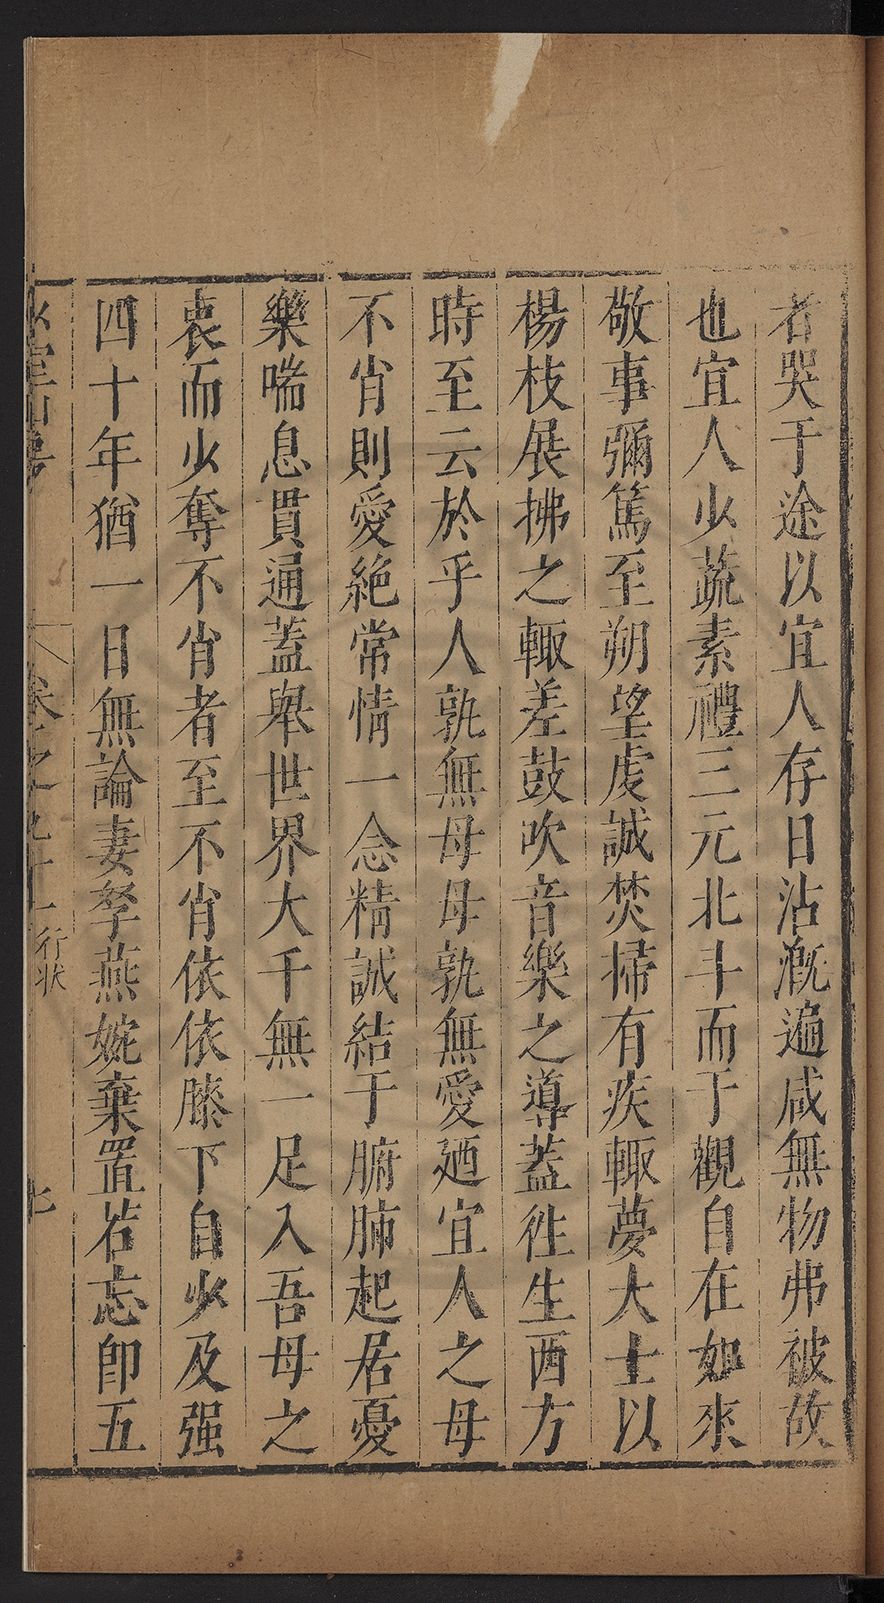 者哭于途以宜人存日沾漑遍咸無物弗被故
也宜人少蔬素禮三元北斗而于觀自在如來
敬事彌篤至朔望虔誠焚掃有疾輒夢大士以
楊枝展拂之輒差鼓吹音樂之導蓋徃生西方
時至云於乎人孰無母母孰無愛廼宜人之母
不肖則愛絶常情一念精誠結于腑肺起居憂
樂喘息貫通蓋舉世界大千無一足入吾母之
衷而少奪不肖者至不肖依依膝下自少及强
四十年猶一日無論妻孥燕婉棄置若忘卽五
少室山房
卷之九十一
行状
七